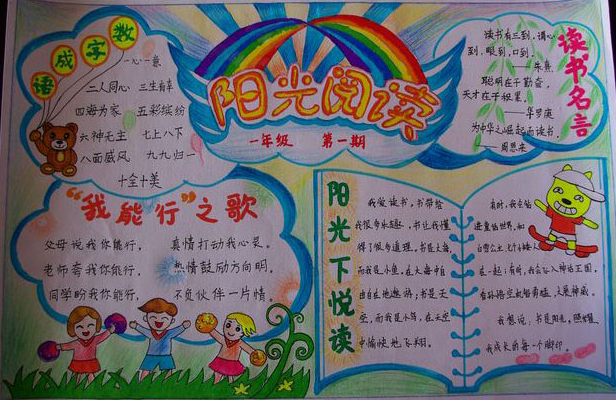 数字成语
一心一意
二人同心 三生有幸
四海为家 五彩缤纷
六神无主 七上八下
八面威风 九九归一
十全十美
阳光阅读
一年级 第一期
读书名言
读书有三到,谓心
到,眼到,口到。
——朱熹
聪明在于勤奋,
天才在于积累。
——华罗庚
为中华之崛起而读书。
——周恩来
“我能行”之歌
父母说我你能行, 真情打动我心灵。
老师夸我你能行, 热情鼓励方向明。
同学盼我你能行, 不负伙伴一片情。
阳光下悦读
我爱读书,书带给
我很多乐趣,书让我懂
得了很多道理。书是大海,
而我是小鱼,在大海中自
由自在地遨游;书是天
空,而我是小鸟,在天空
中愉快地飞翔。
有时,我会钻
进童话世界,和
白雪公主、七个小矮人
在一起;有时,我会加入神话王国,
看孙悟空机智勇敢,大展神威。
我想说:书是阳光,照耀着
我成长的每一个脚印。